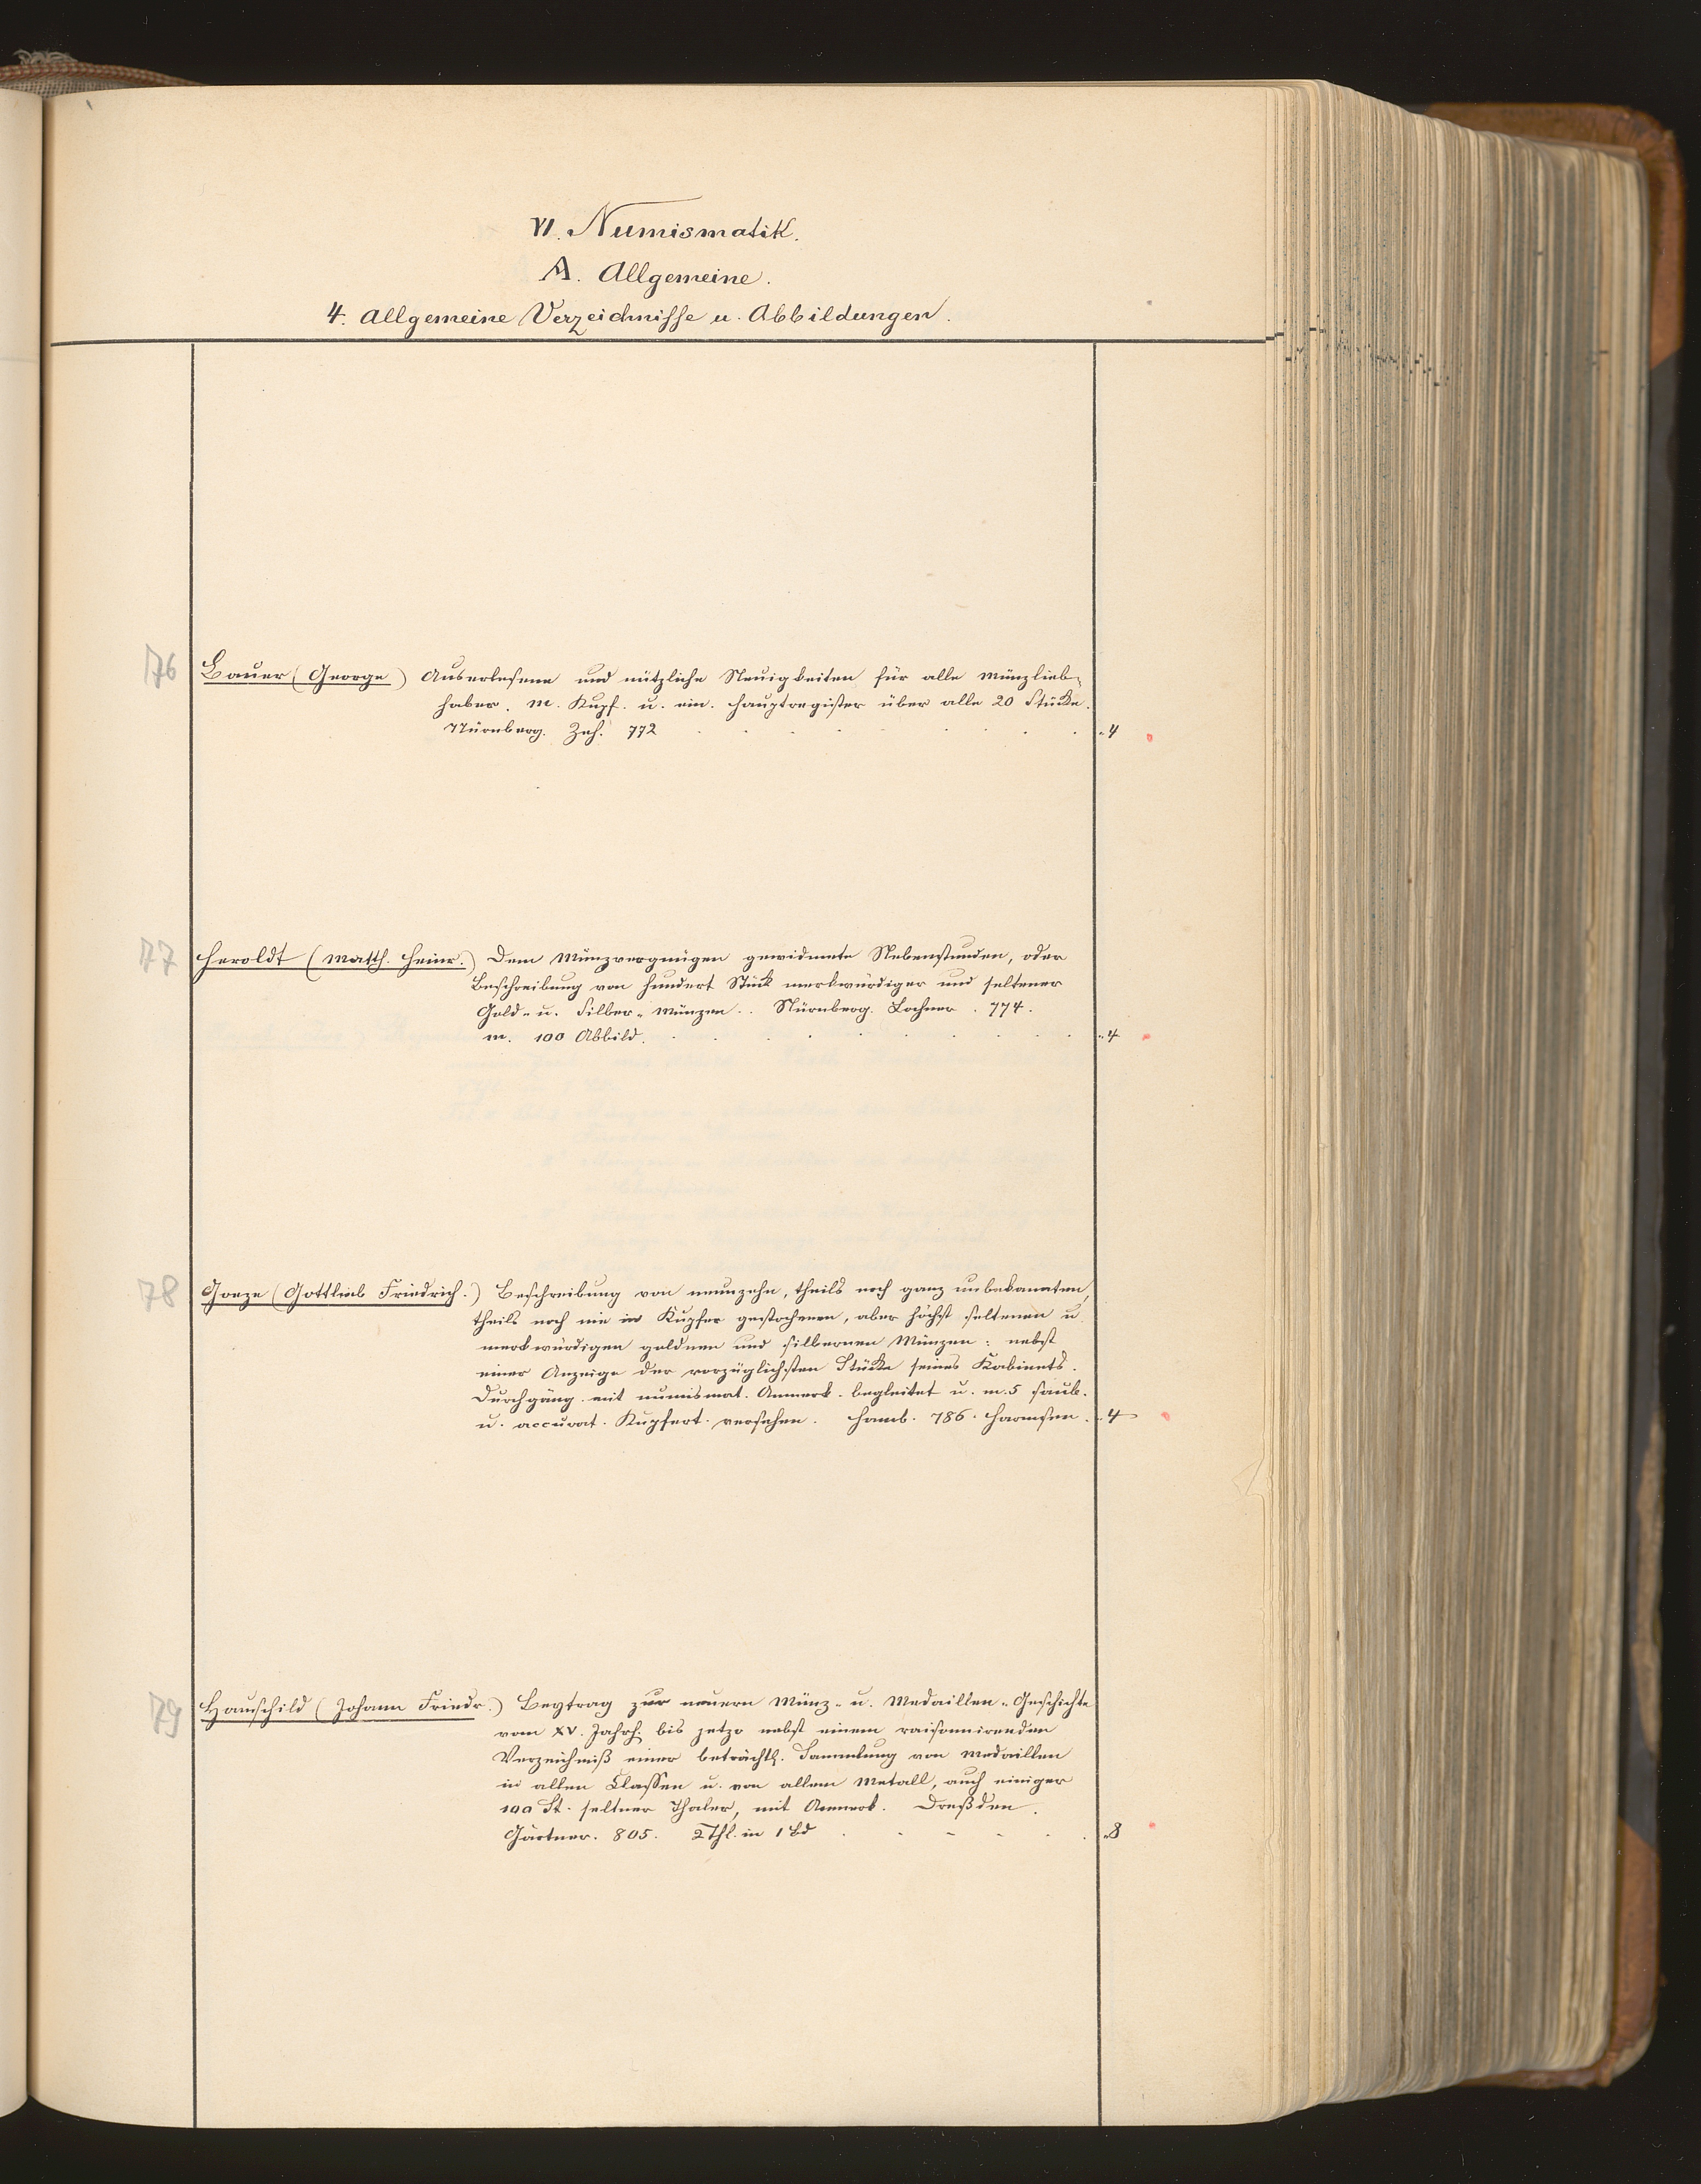 VI. Numismatik.
A. Allgemeine.
4. Allgemeine Verzeichnisse u. Abbildungen.
76 Bauer (George) Auserlesene und nützliche Neuigkeiten für alle Münzlieb-
haber. M. Kupf. u. ein. Hauptregister über alle 20 Stücke.
Nürnberg. Zeh. 772 . . . . . . . . „ 4
77 Heroldt (Matth. Heinr.) Dem Münzvergnügen gewidmete Nebenstunden, oder
Beschreibung von hundert Stück merkwürdiger und seltener
Gold- u. Silber-Münzen. . Nürnberg. Lochner. 774.
m. 100 Abbild. . . . . . . . . „ 4
78 Goeze (Gottlieb Friedrich.) Beschreibung von neunzehn, theils noch ganz unbekannten,
theils noch nie in Kupfer gestochenen, aber höchst seltenen u
merkwürdigen goldnen und silbernen Münzen: nebst
einer Anzeige der vorzüglichsten Stücke seines Kabinets.
Durchgäng. mit numismat. Anmerk. begleitet u. m. 5 saub.
u. accurat. Kupfert. versehen. Hamb. 786. Harmsen. „ 4
79 Hauschild (Johann Friedr.) Beytrag zur neuern Münz- u. Medaillen-Geschichte
vom XV. Jahrh. bis jetzo nebst einem raisonnirenden
Verzeichniß einer beträchtl. Sammlung von Medaillen
in allen Classen u. von allem Metall, auch einiger
100 St. seltner Thaler, mit Anmerk. Dreßden.
Gärtner. 805. 2 Thl. in 1 Bd . . . . . . „ 8